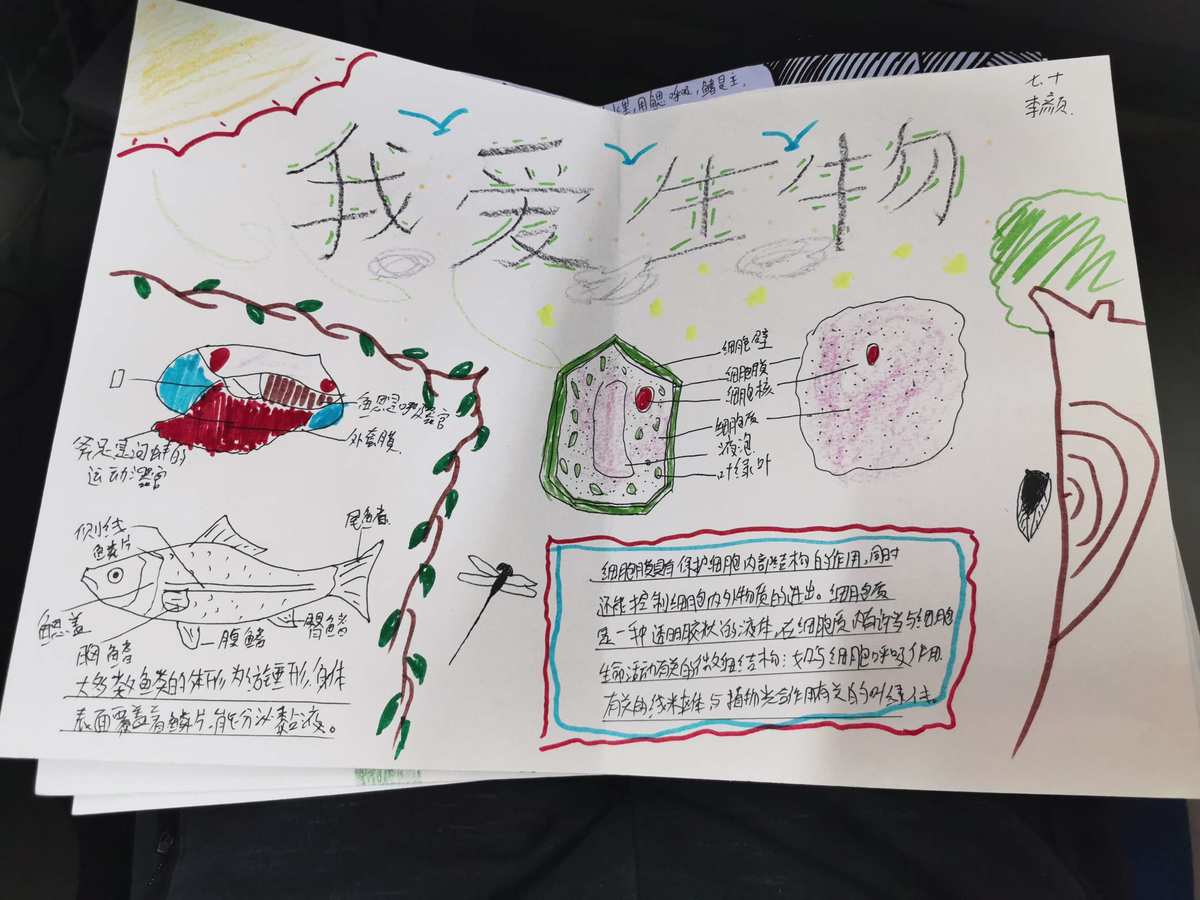 水里,用鳃呼吸,鳍是主
七.十
李颜.
我爱生物
口
鱼思是呼吸器官
外套膜.
斧足是河蚌的
运动器官
侧线
鱼鳞片
尾鱼者
鱼思盖
胸鱼者
腹鱼者
臀鱼者
大多数鱼类的体形为纺垂形.身体
表面覆盖有鳞片,能分泌黏液。
细胞壁
细胞膜
细胞核
细胞质
液泡
叶绿叶
细胞膜具有保护细胞内部结构的作用,同时
还能控制细胞内外物质的进出。细胞质
是一种透明胶状的液体,在细胞质内有许多与细胞
生命活动有关的微细结构;如与细胞呼吸作用
有关的线米粒体与植物光合作用有关的叶绿体。